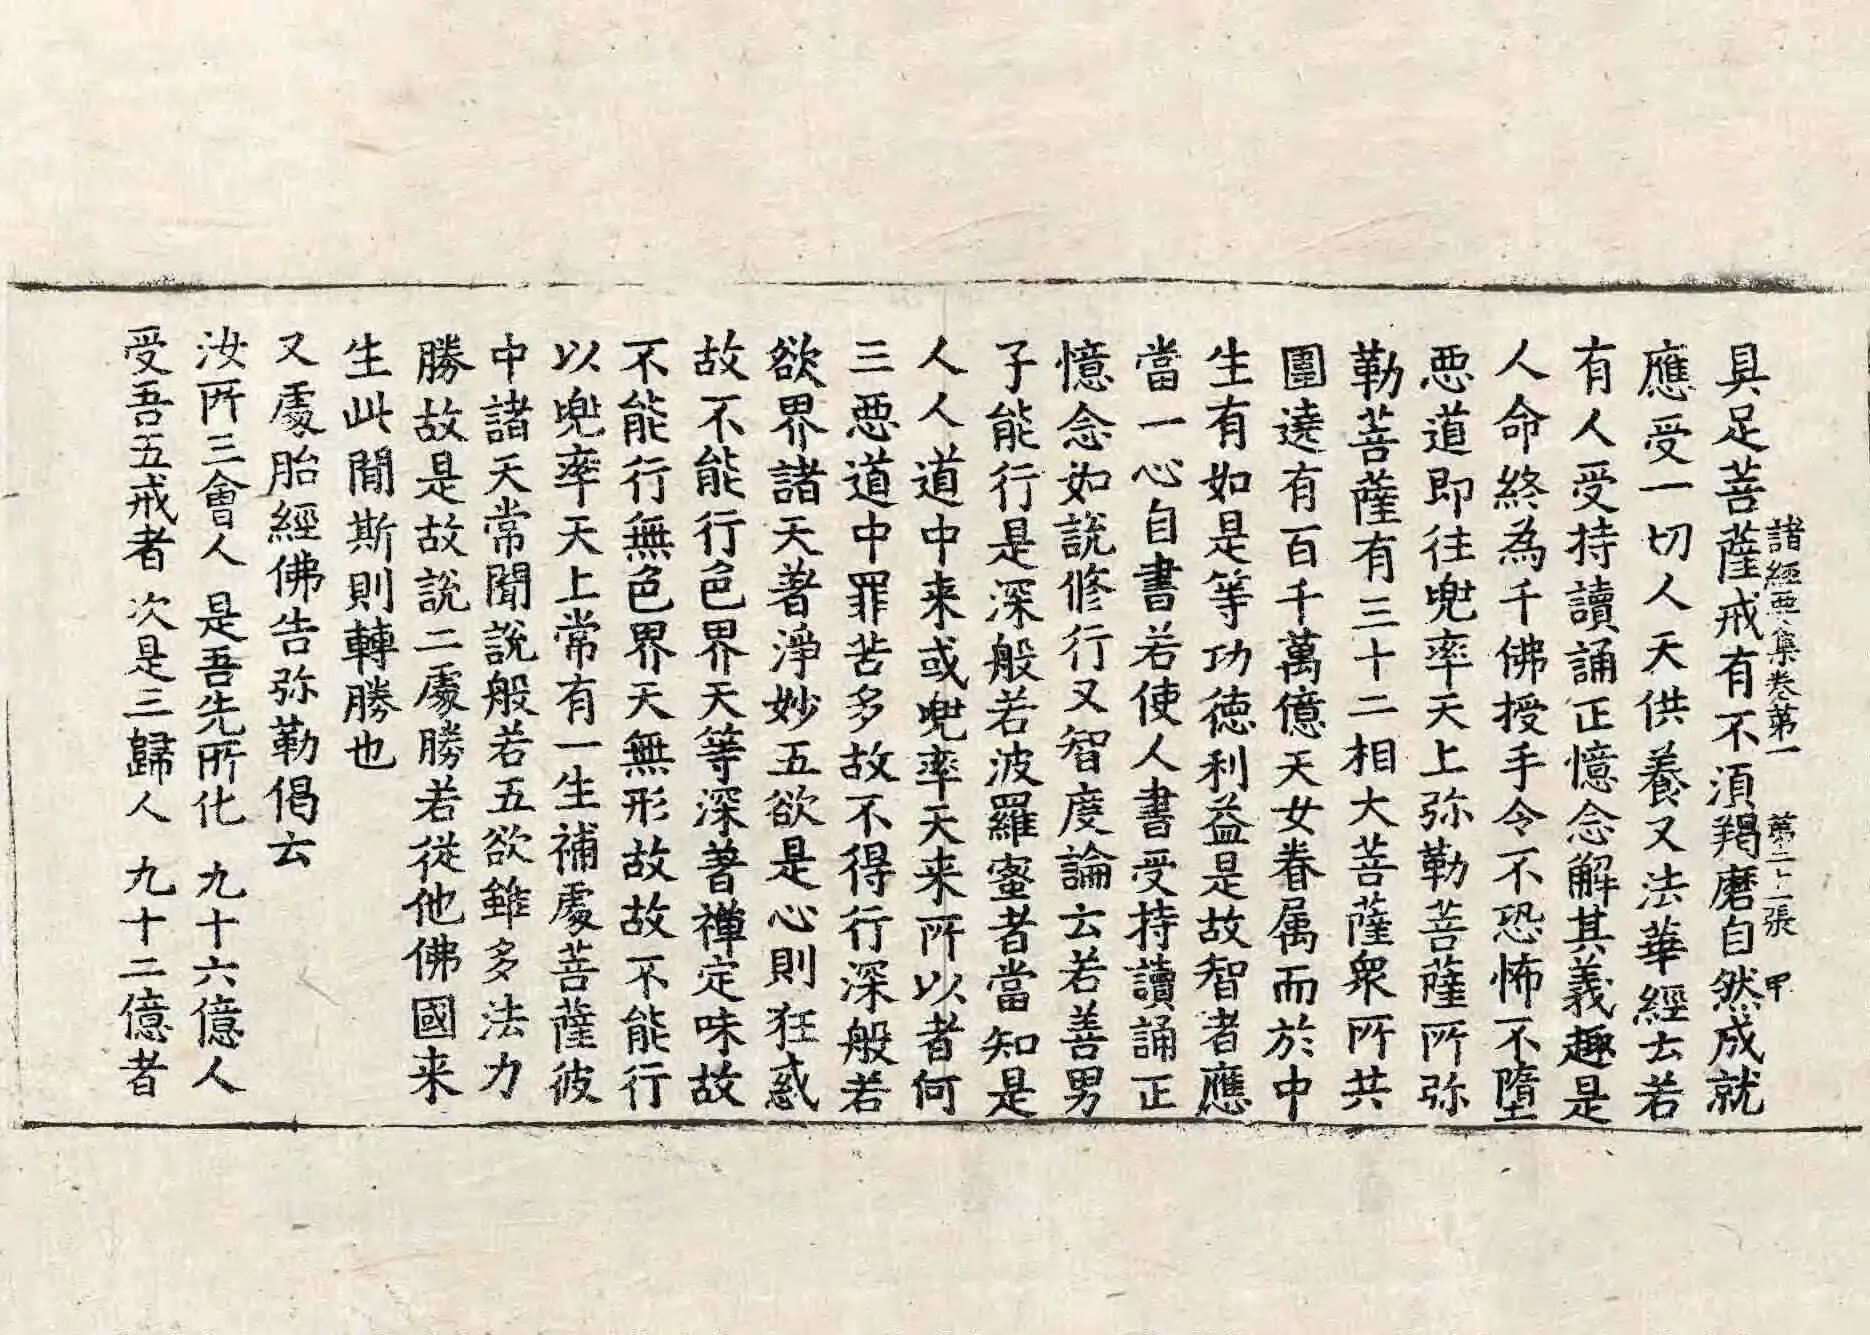 諸經要集卷第一 第二十二張 甲
具足菩薩戒有不湏羯磨自然成就
應受一切人天供養又法華經云若
有人受持讀誦正憶念解其義趣是
人命終為千佛授手令不恐怖不墮
惡道即往兜率天上弥勒菩薩所弥
勒菩薩有三十二相大菩薩衆所共
圍遶有百千萬億天女眷属而於中
生有如是等功徳利益是故智者應
當一心自書若使人書受持讀誦正
憶念如說修行又智度論云若善男
子能行是深般若波羅蜜者當知是
人人道中来或兜率天来所以者何
三惡道中罪苦多故不得行深般若
欲界諸天著淨妙五欲是心則狂惑
故不能行色界天等深著禪定味故
不能行無色界天無形故故不能行
以兜率天上常有一生補處菩薩彼
中諸天常聞說般若五欲雖多法力
勝故是故說二處勝若從他佛國来
生此間斯則轉勝也
又處胎經佛告弥勒偈云
汝所三會人 是吾先所化 九十六億人
受吾五戒者 次是三歸人 九十二億者